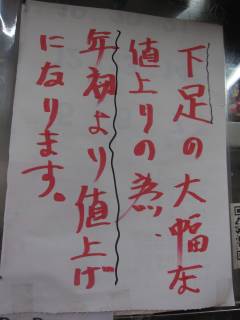 下足の大幅な
値上りの為、
年初より値上げ
になります。